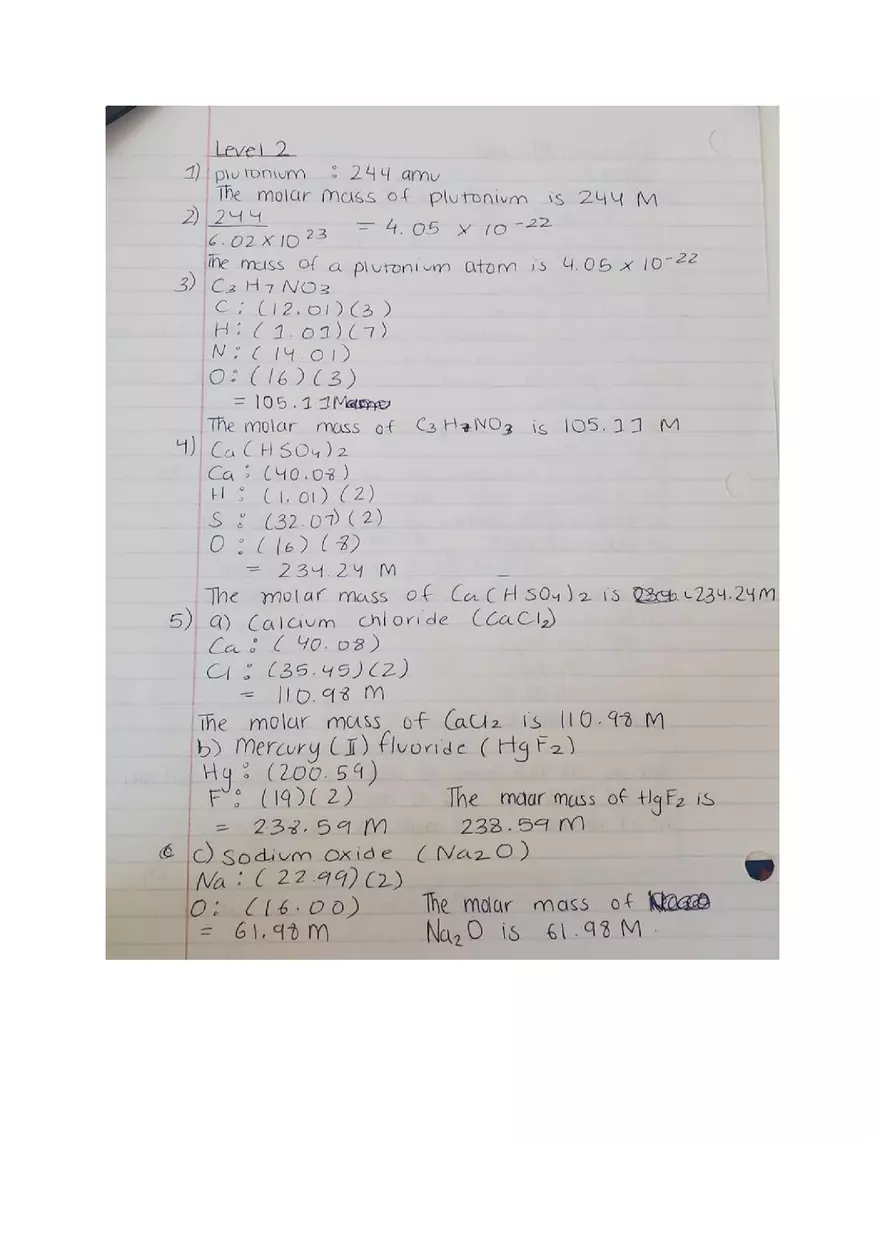 Level 2
1) plutonium : 244 amu
The molar mass of plutonium is 244 M
2) 244
6.02 x 10 23 = 4.05 x 10 -22
The mass of a plutonium atom is 4.05 x 10-22
3) C3 H7 NO3
C : (12.01)(3)
H : (1.01)(7)
N : (14.01)
O : (16)(3)
= 105.11M
The molar mass of C3H7NO3 is 105.11 M
4) Ca(HSO4)2
Ca : (40.08)
H : (1.01)(2)
S : (32.07)(2)
O : (16)(8)
= 234.24 M
The molar mass of Ca(HSO4)2 is 234.24M
5) a) Calcium chloride (CaCl2)
Ca : (40.08)
Cl : (35.45)(2)
= 110.98 M
The molar mass of CaCl2 is 110.98 M
b) Mercury (II) fluoride (HgF2)
Hg : (200.59)
F : (19)(2) The molar mass of HgF2 is
= 238.59 M 238.59 M
c) Sodium oxide (Na2O)
Na : (22.99)(2)
O : (16.00) The molar mass of
= 61.98 M Na2O is 61.98 M.